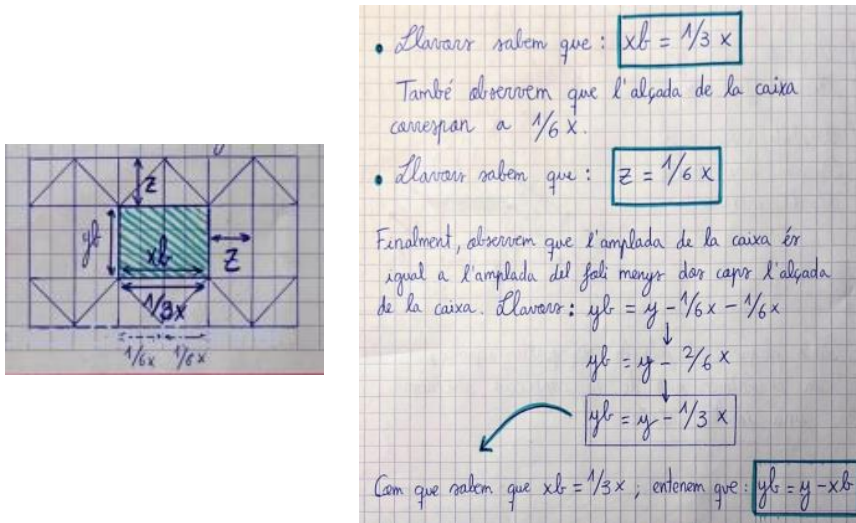 z
yb
xb
z
1/3x
1/6x 1/6x
• Llavors sabem que: xb = 1/3 x
També observem que l'alçada de la caixa
correspon a 1/6 x.
• Llavors sabem que: z = 1/6 x
Finalment, observem que l'amplada de la caixa és
igual a l'amplada del foli menys dos cops l'alçada
de la caixa. Llavors: yb = y - 1/6x - 1/6x
yb = y - 2/6 x
yb = y - 1/3 x
Com que sabem que xb = 1/3x, entenem que: yb = y - xb